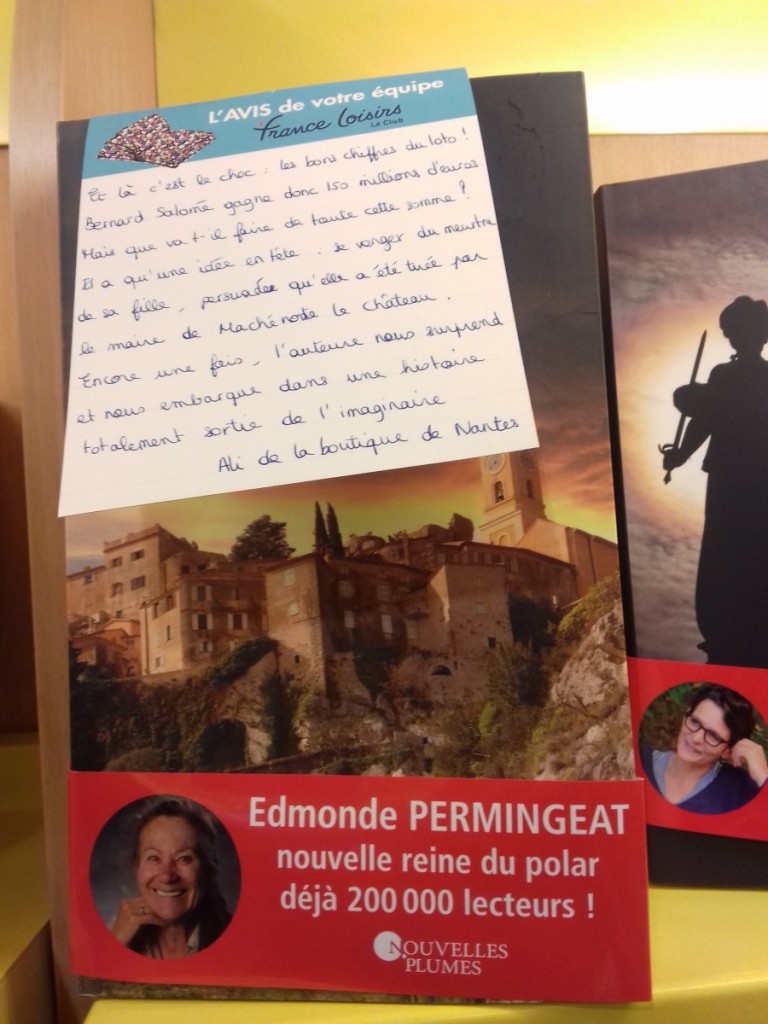 L'AVIS de votre équipe
France Loisirs
Le Club
Et là c'est le choc : les bons chiffres du loto !
Bernard Salomé gagne donc 150 millions d'euros.
Mais que va t-il faire de toute cette somme ?
Il a qu'une idée en tête : se venger du meurtre
de sa fille, persuader qu'elle a été tuée par
le maire de Machénode le château.
Encore une fois, l'auteure nous surprend
et nous embarque dans une histoire
totalement sortie de l'imaginaire
Ali de la boutique de Nantes
Edmonde PERMINGEAT
nouvelle reine du polar
déjà 200 000 lecteurs !
NOUVELLES
PLUMES